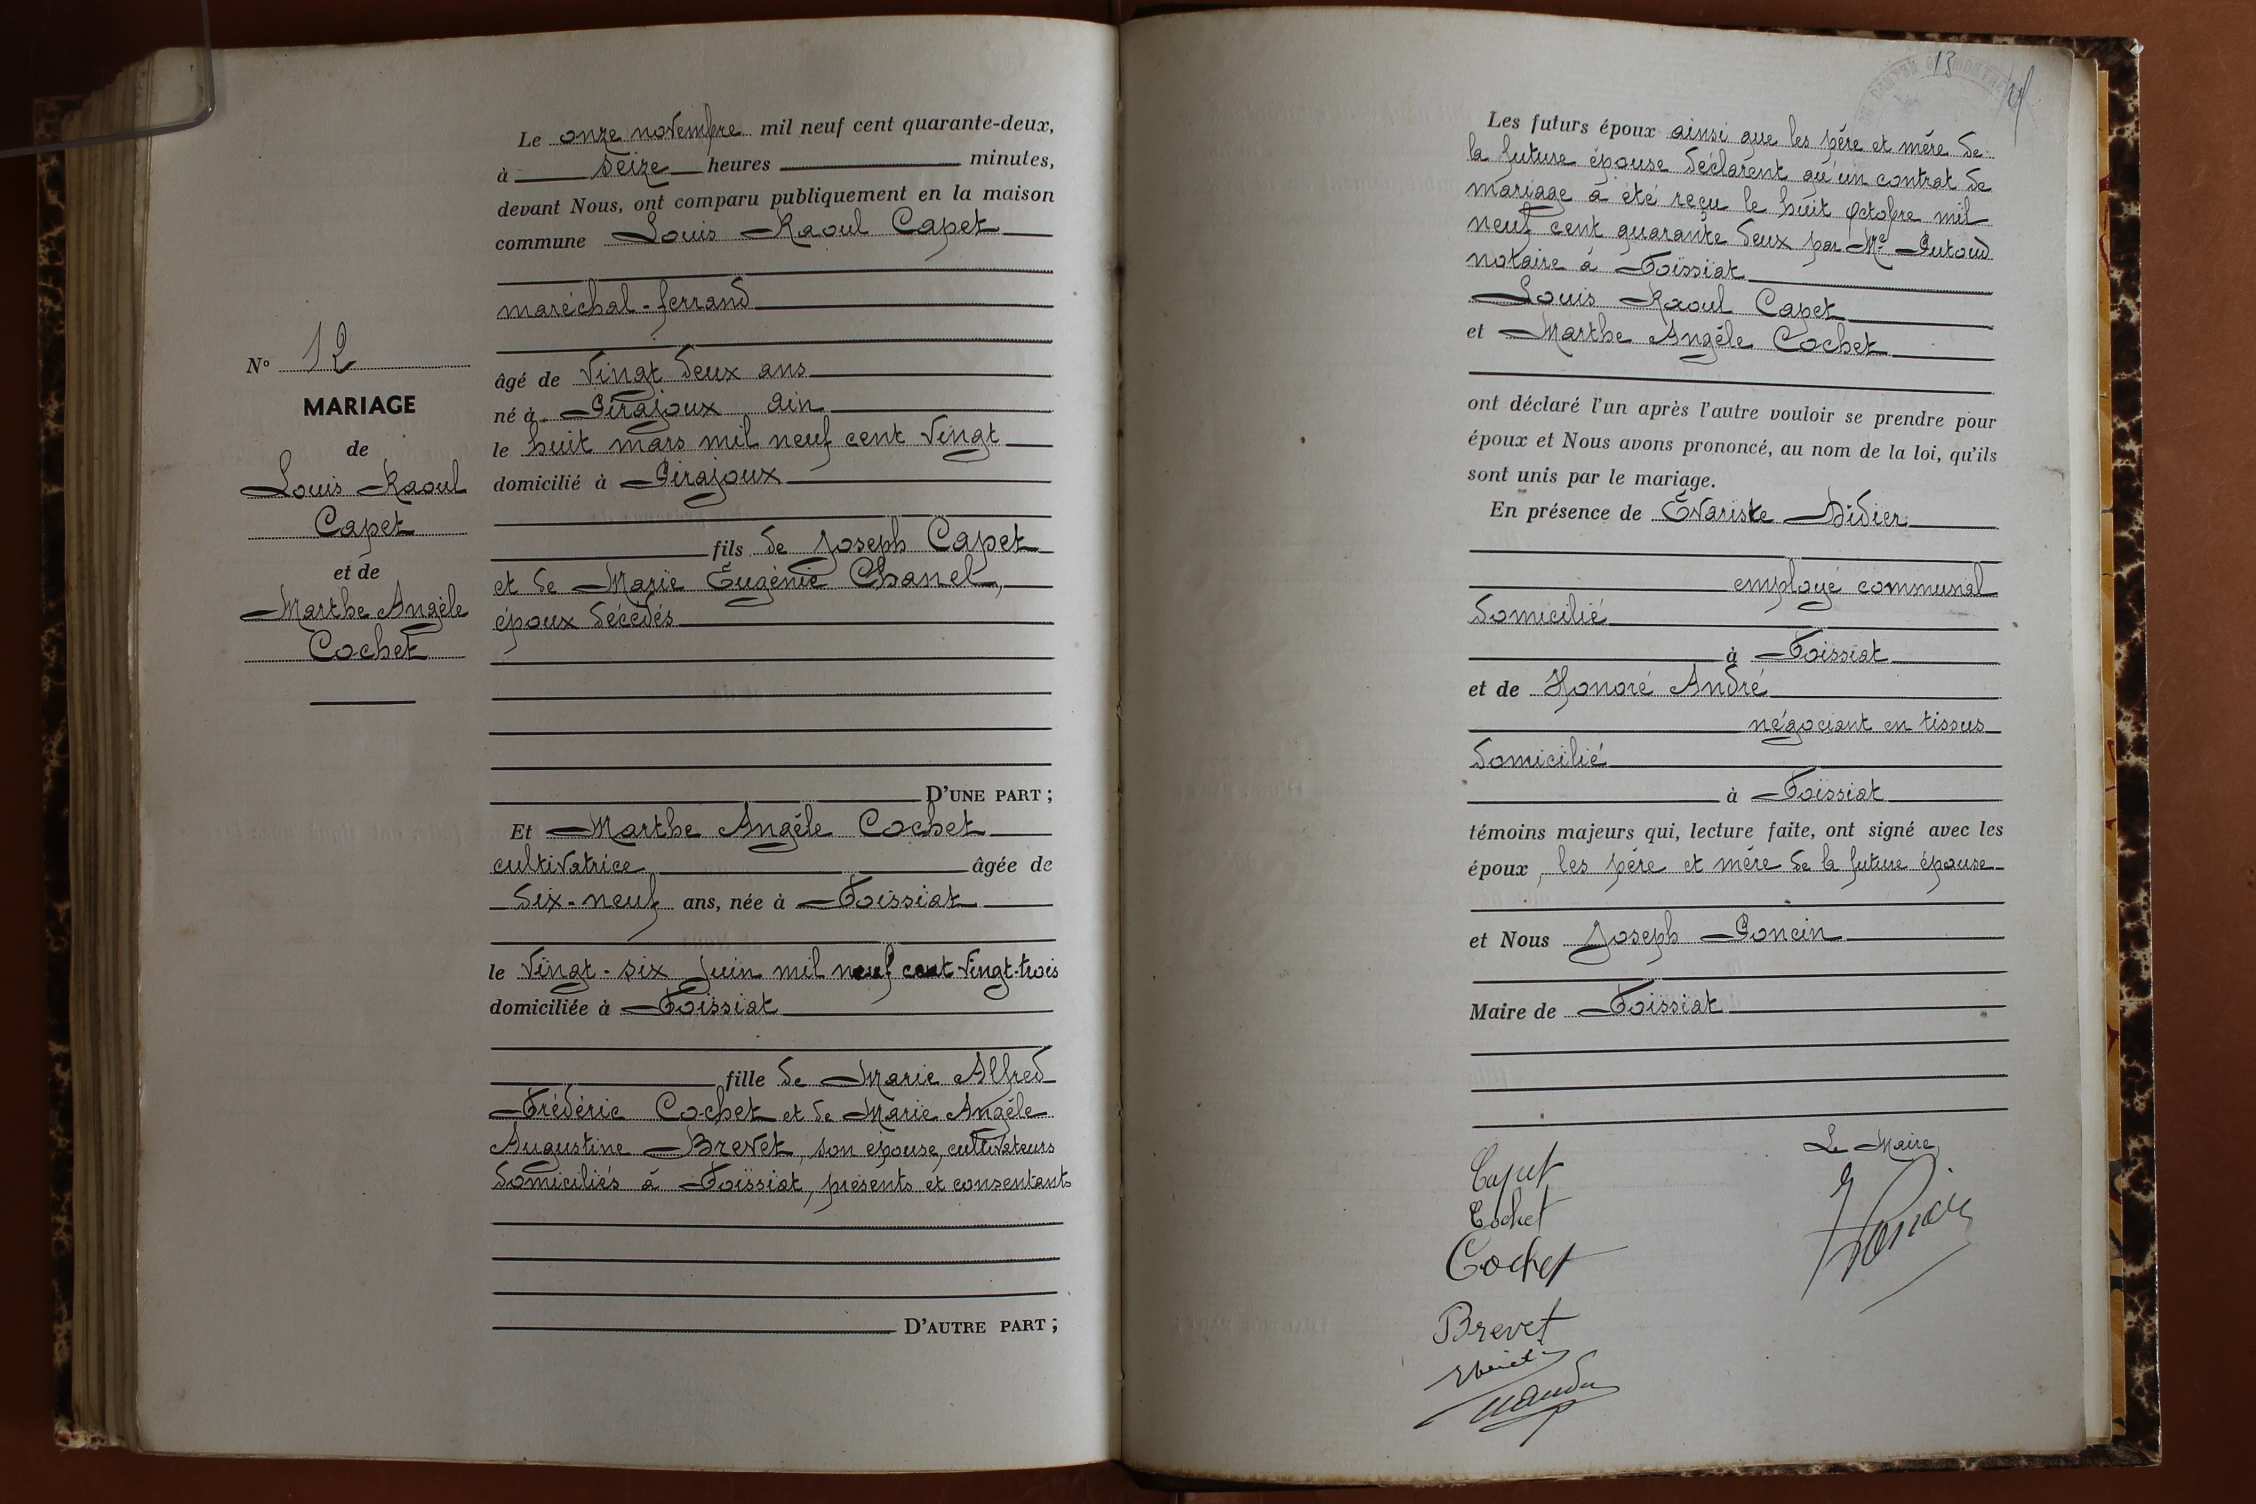 N° 12
MARIAGE
de
Louis Raoul
Capet
et de
Marthe Angèle
Cochet
Le onze novembre mil neuf cent quarante-deux,
à seize heures minutes,
devant Nous, ont comparu publiquement en la maison
commune Louis Raoul Capet
maréchal-ferrand
âgé de vingt deux ans
né à Pirajoux Ain
le huit mars mil neuf cent vingt
domicilié à Pirajoux
fils de Joseph Capet
et de Marie Eugènie Chanel,
époux décédés
D'UNE PART ;
Et Marthe Angèle Cochet
cultivatrice âgée de
dix-neuf ans, née à Foissiat
le vingt-six juin mil neuf cent vingt-trois
domiciliée à Foissiat
fille de Marie Alfred
Frédéric Cochet et de Marie Angèle
Augustine Brevet, son épouse, cultivateurs
domiciliés à Foissiat, présents et consentants
D'AUTRE PART ;
13
Les futurs époux ainsi que les père et mère de
la future épouse déclarent qu'un contrat de
mariage a été reçu le huit octobre mil
neuf cent quarante deux par Me Putoud
notaire à Foissiat
Louis Raoul Capet
et Marthe Angèle Cochet
ont déclaré l'un après l'autre vouloir se prendre pour
époux et Nous avons prononcé, au nom de la loi, qu'ils
sont unis par le mariage.
En présence de Evariste Didier
employé communal
domicilié
à Foissiat
et de Honoré André
négociant en tissus
domicilié
à Foissiat
témoins majeurs qui, lecture faite, ont signé avec les
époux, les père et mère de la future épouse
et Nous Joseph Poncin
Maire de Foissiat
Le Maire
Capet
Cochet
Cochet
Brevet
Poncin